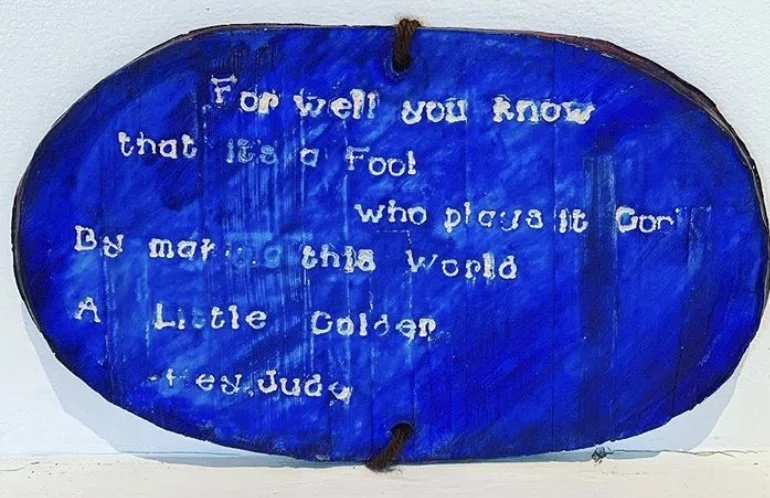 For well you know
that it's a Fool
who plays it
By this World
A Little Colder
Hey Jude